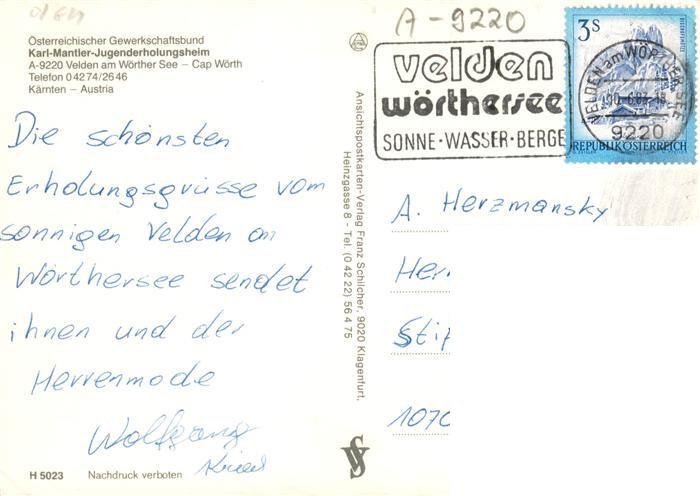 A-9220
Österreichischer Gewerkschaftsbund
Karl-Mantler-Jugenderholungsheim
A-9220 Velden am Wörther See – Cap Wörth
Telefon 0 42 74 / 26 46
Kärnten – Austria
velden
wörthersee
SONNE·WASSER·BERGE
3 S
VELDEN am WÖRTHER SEE
9220
REPUBLIK ÖSTERREICH
Die schönsten
Erholungsgrüsse vom
sonnigen Velden am
Wörthersee sendet
ihnen und der
Herrenmode
Wolfgang
Ansichtspostkarten-Verlag Franz Schilcher, 9020 Klagenfurt,
Heinzgasse 8 - Tel. (0 42 22) 56 4 75
A. Herzmansky
Herr
Stif
1070
H 5023 Nachdruck verboten